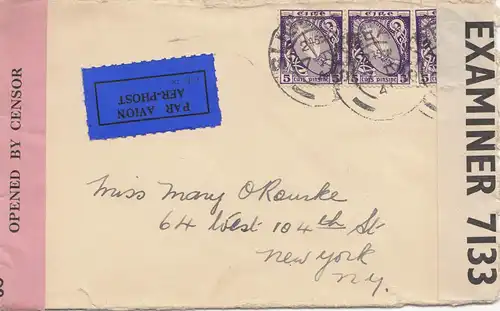 OPENED BY CENSOR
PAR AVION
AER-PHOST
éire
éire
éire
5
5
5
5
5
EXAMINER 7133
Miss Mary O'Rourke
64 West 104th St
New York
N.Y.